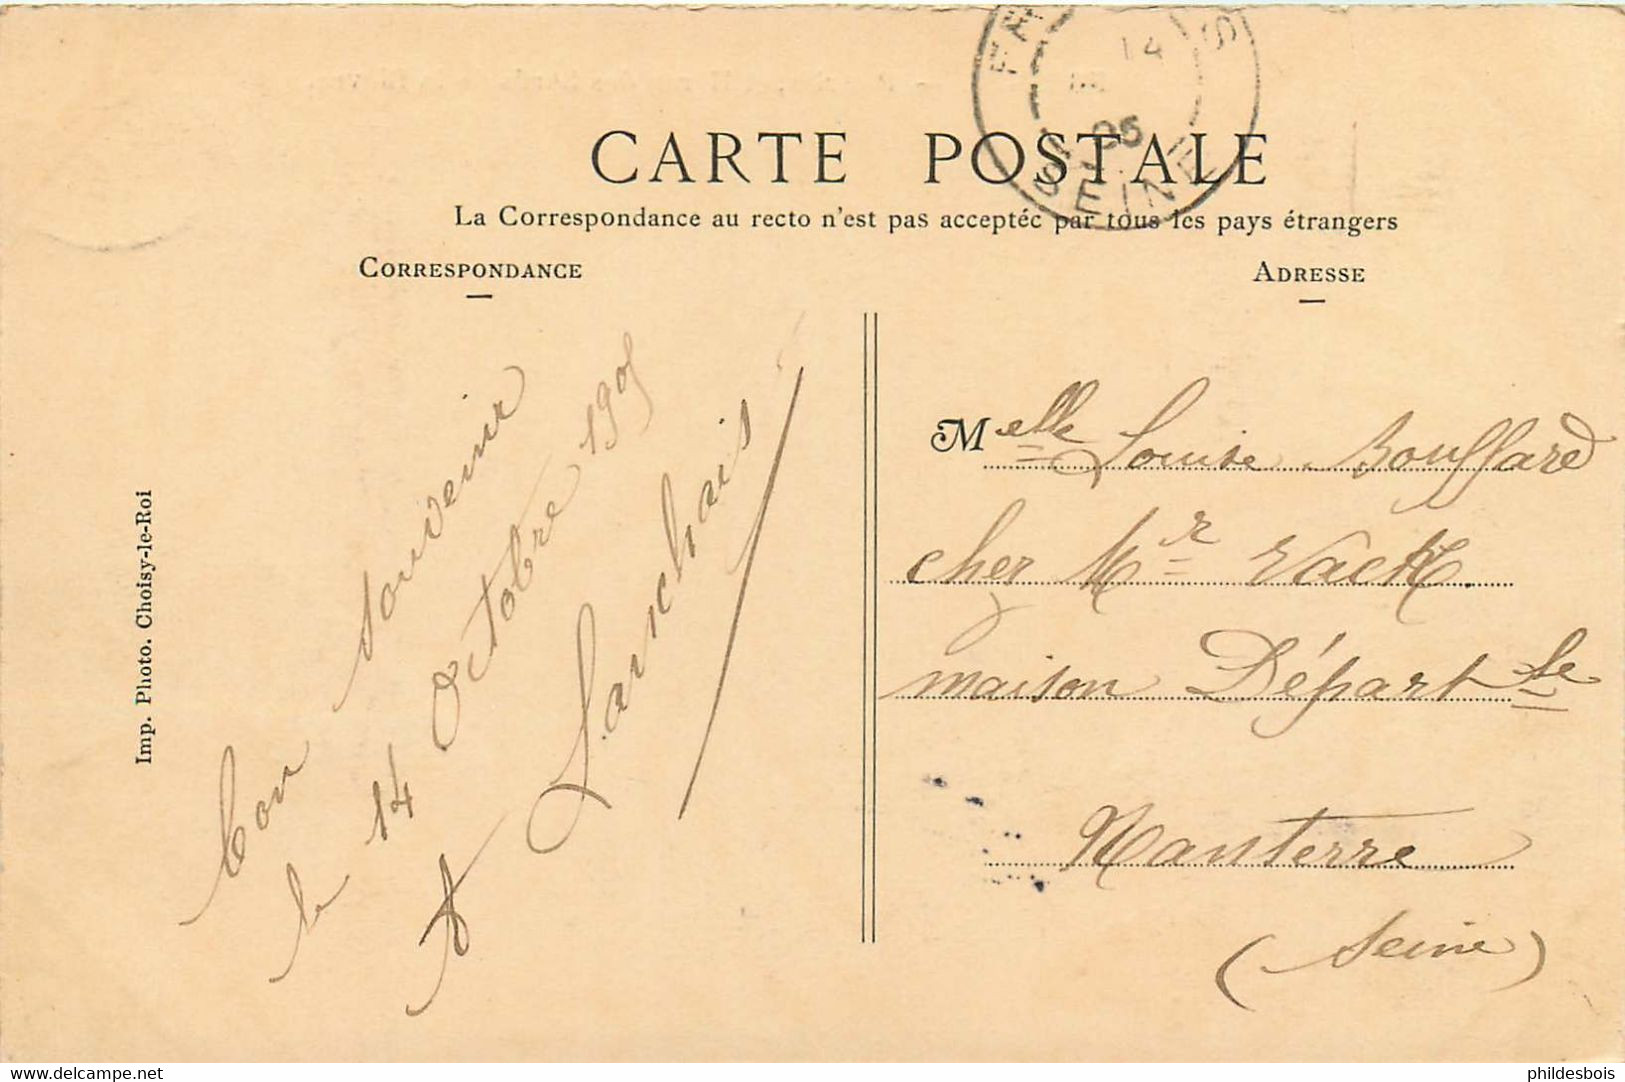 14
05
SEINE
CARTE POSTALE
La Correspondance au recto n'est pas acceptée par tous les pays étrangers
CORRESPONDANCE
ADRESSE
Imp. Photo. Choisy-le-Roi
bon souvenir
le 14 Octobre 1905
Melle Louise Bouffard
chez Mr Vack.
maison Départle
Nanterre
(Seine)
phildesbois